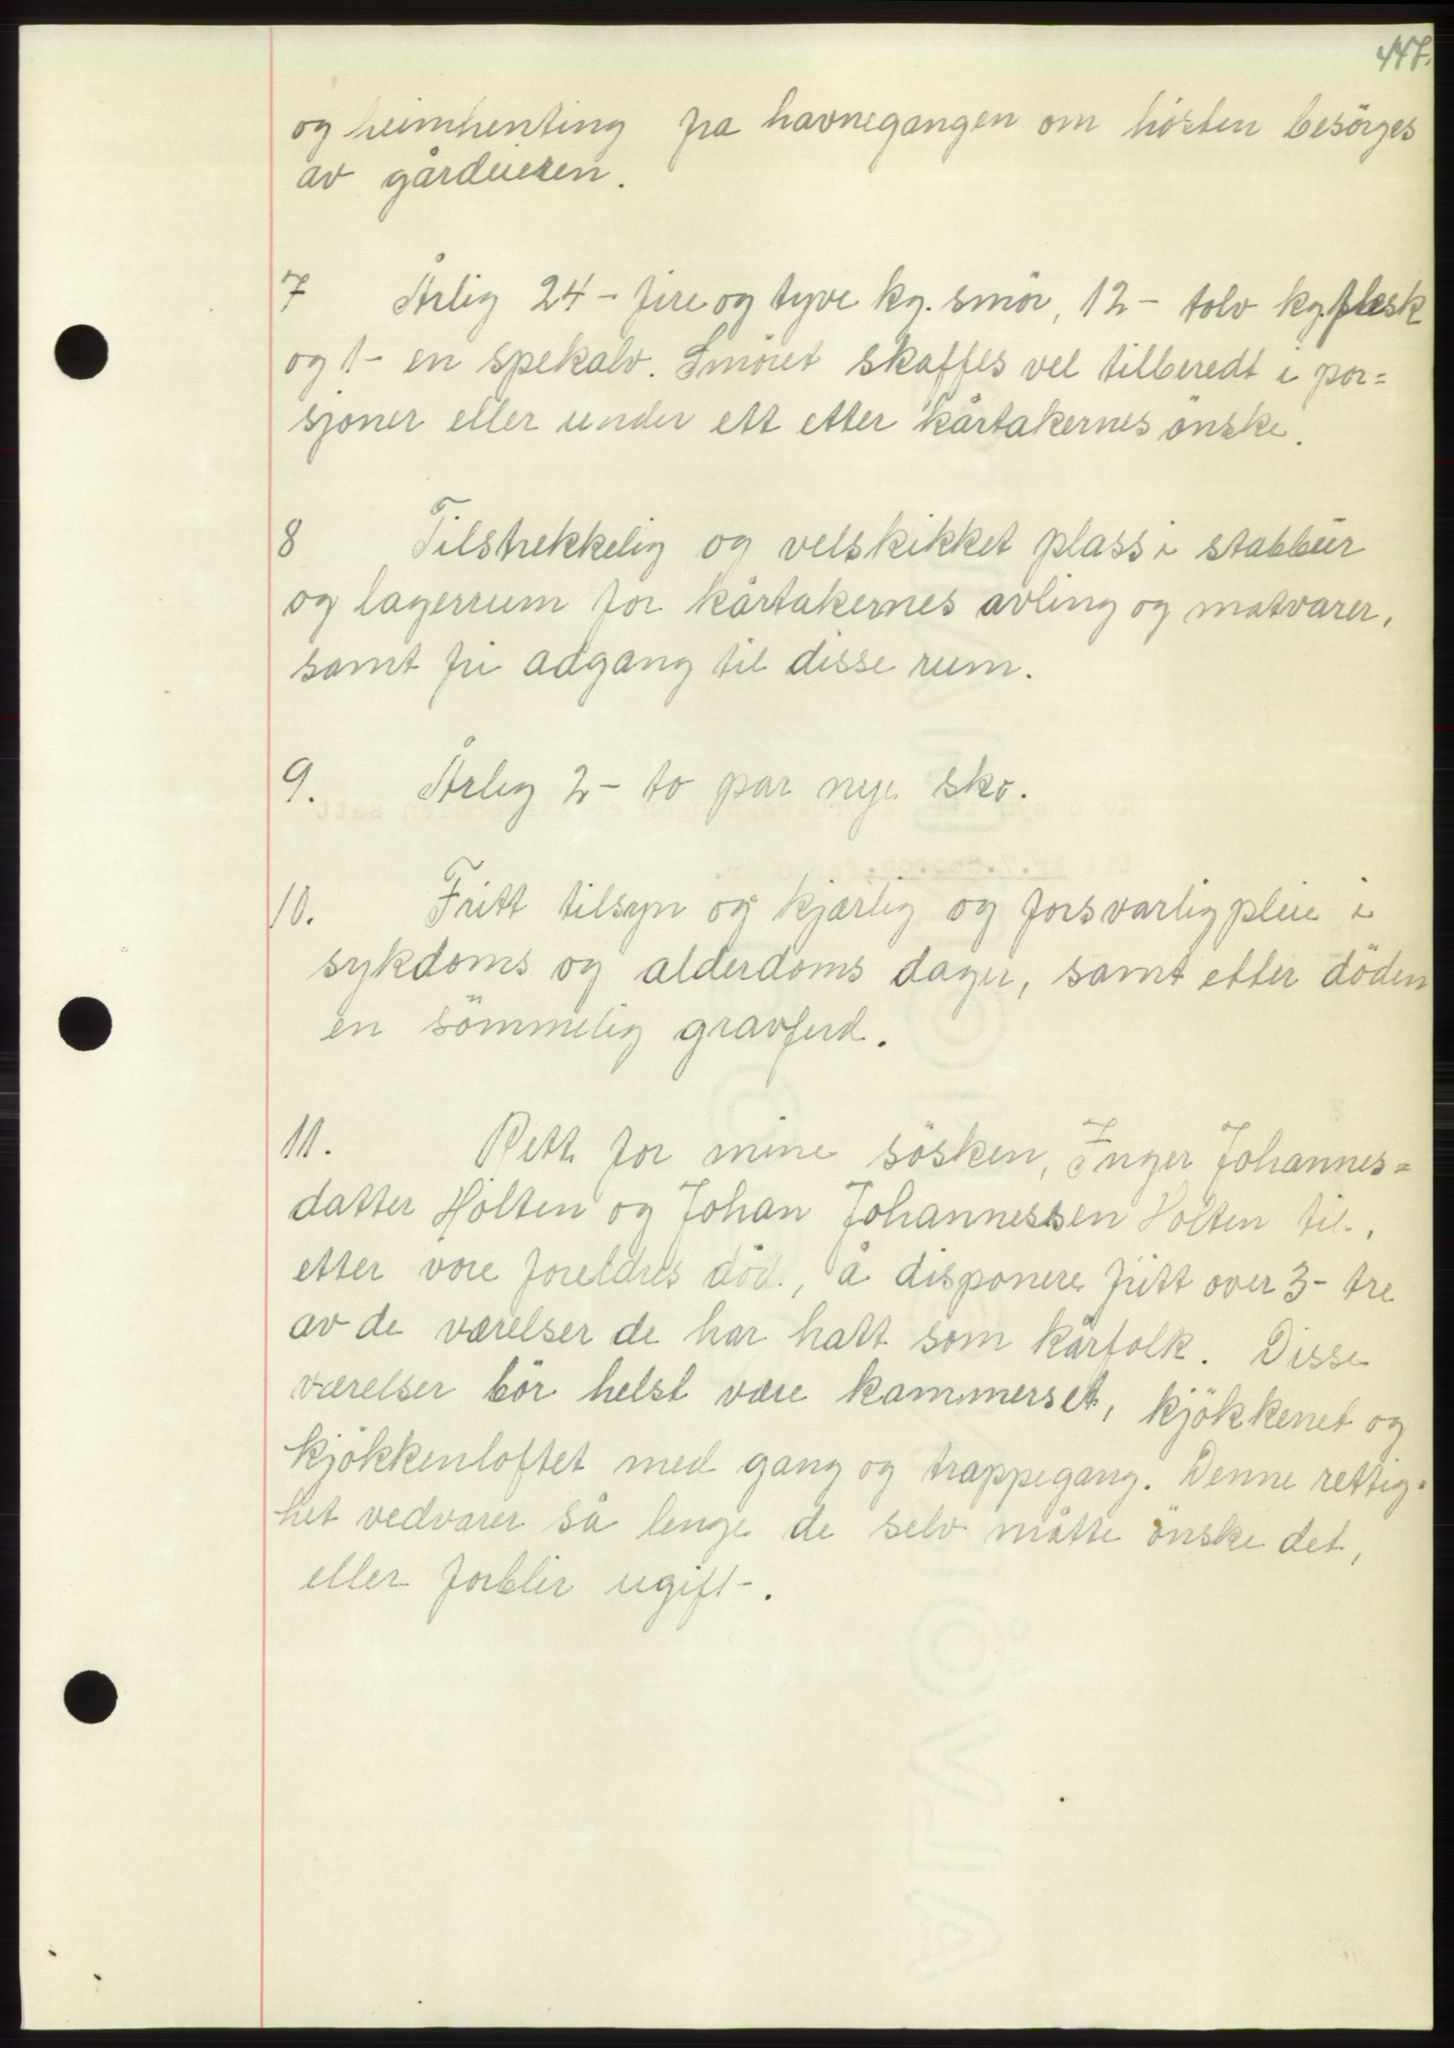 447.
og heimhenting fra havnegangen om hösten besörges
av gårdeieren.
7 Årlig 24 - fire og tyve kg. smör, 12 - tolv kg. flesk
og 1 - en spekalv. Smöret skaffes vel tilberedt i por=
sjoner eller under ett etter kårtakernes önske.
8 Tilstrekkelig og velskikket plass i stabbur
og lagerrum for kårtakernes avling og matvarer,
samt fri adgang til disse rum.
9. Årlig 2 - to par nye sko.
10. Fritt tilsyn og kjærlig og forsvarlig pleie i
sykdoms og alderdoms dager, samt etter döden
en sömmelig gravferd.
11. Rett for mine sösken, Inger Johannes=
datter Holten og Johan Johannessen Holten til,
etter vore foreldres död, å disponere fritt over 3 - tre
av de værelser de har hatt som kårfolk. Disse
værelser bör helst være kammerset, kjökkenet og
kjökkenloftet med gang og trappegang. Denne rettig=
het vedvarer så lenge de selv måtte önske det,
eller forblir ugift -.